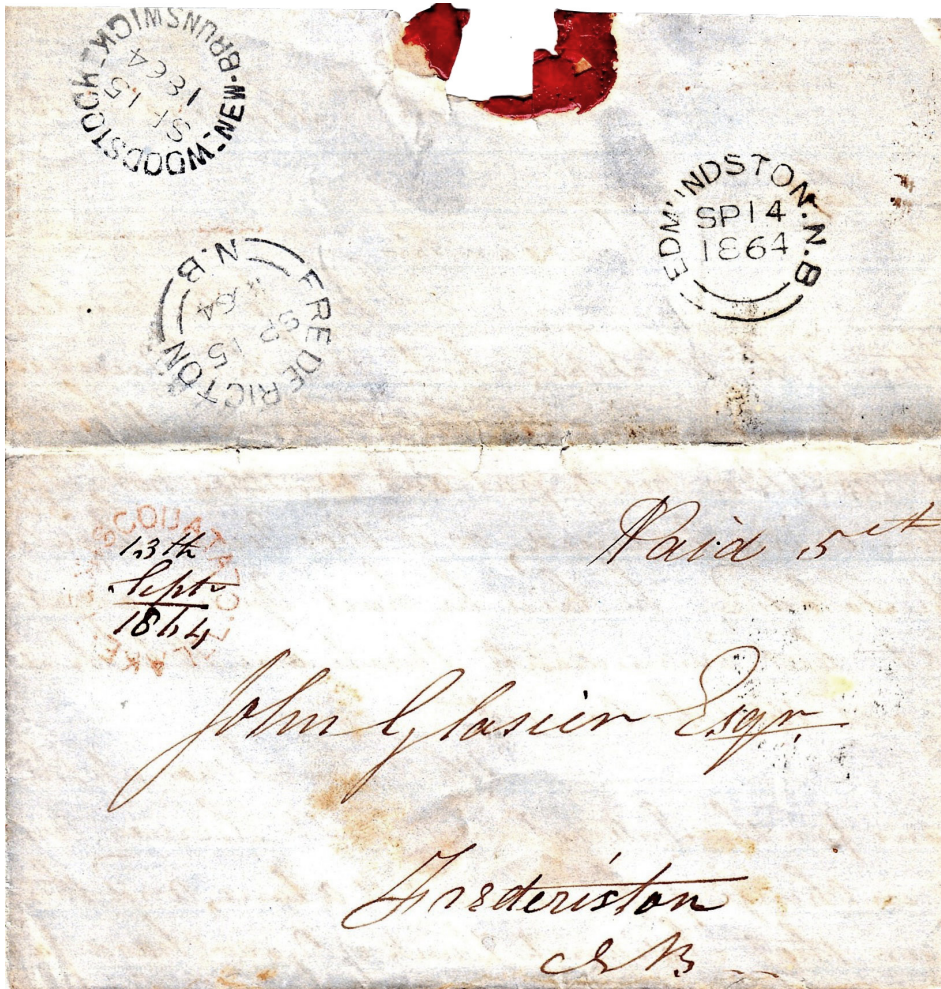 WOODSTOCK-NEW-BRUNSWICK
SP 15
1864
EDM'INDSTON.N.B
SP 14
1864
FREDERICTON N.B
SP 15
64
SCOUATA
LAKE
13th
Sept
1864
Paid 5
John Glasier Esqr.
Frederiston
NB